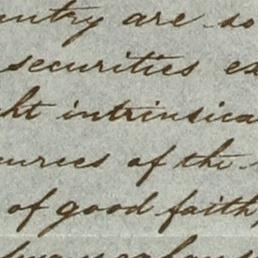 untry are so
securities ex
ht intrinsica
ources of the
of good faith,